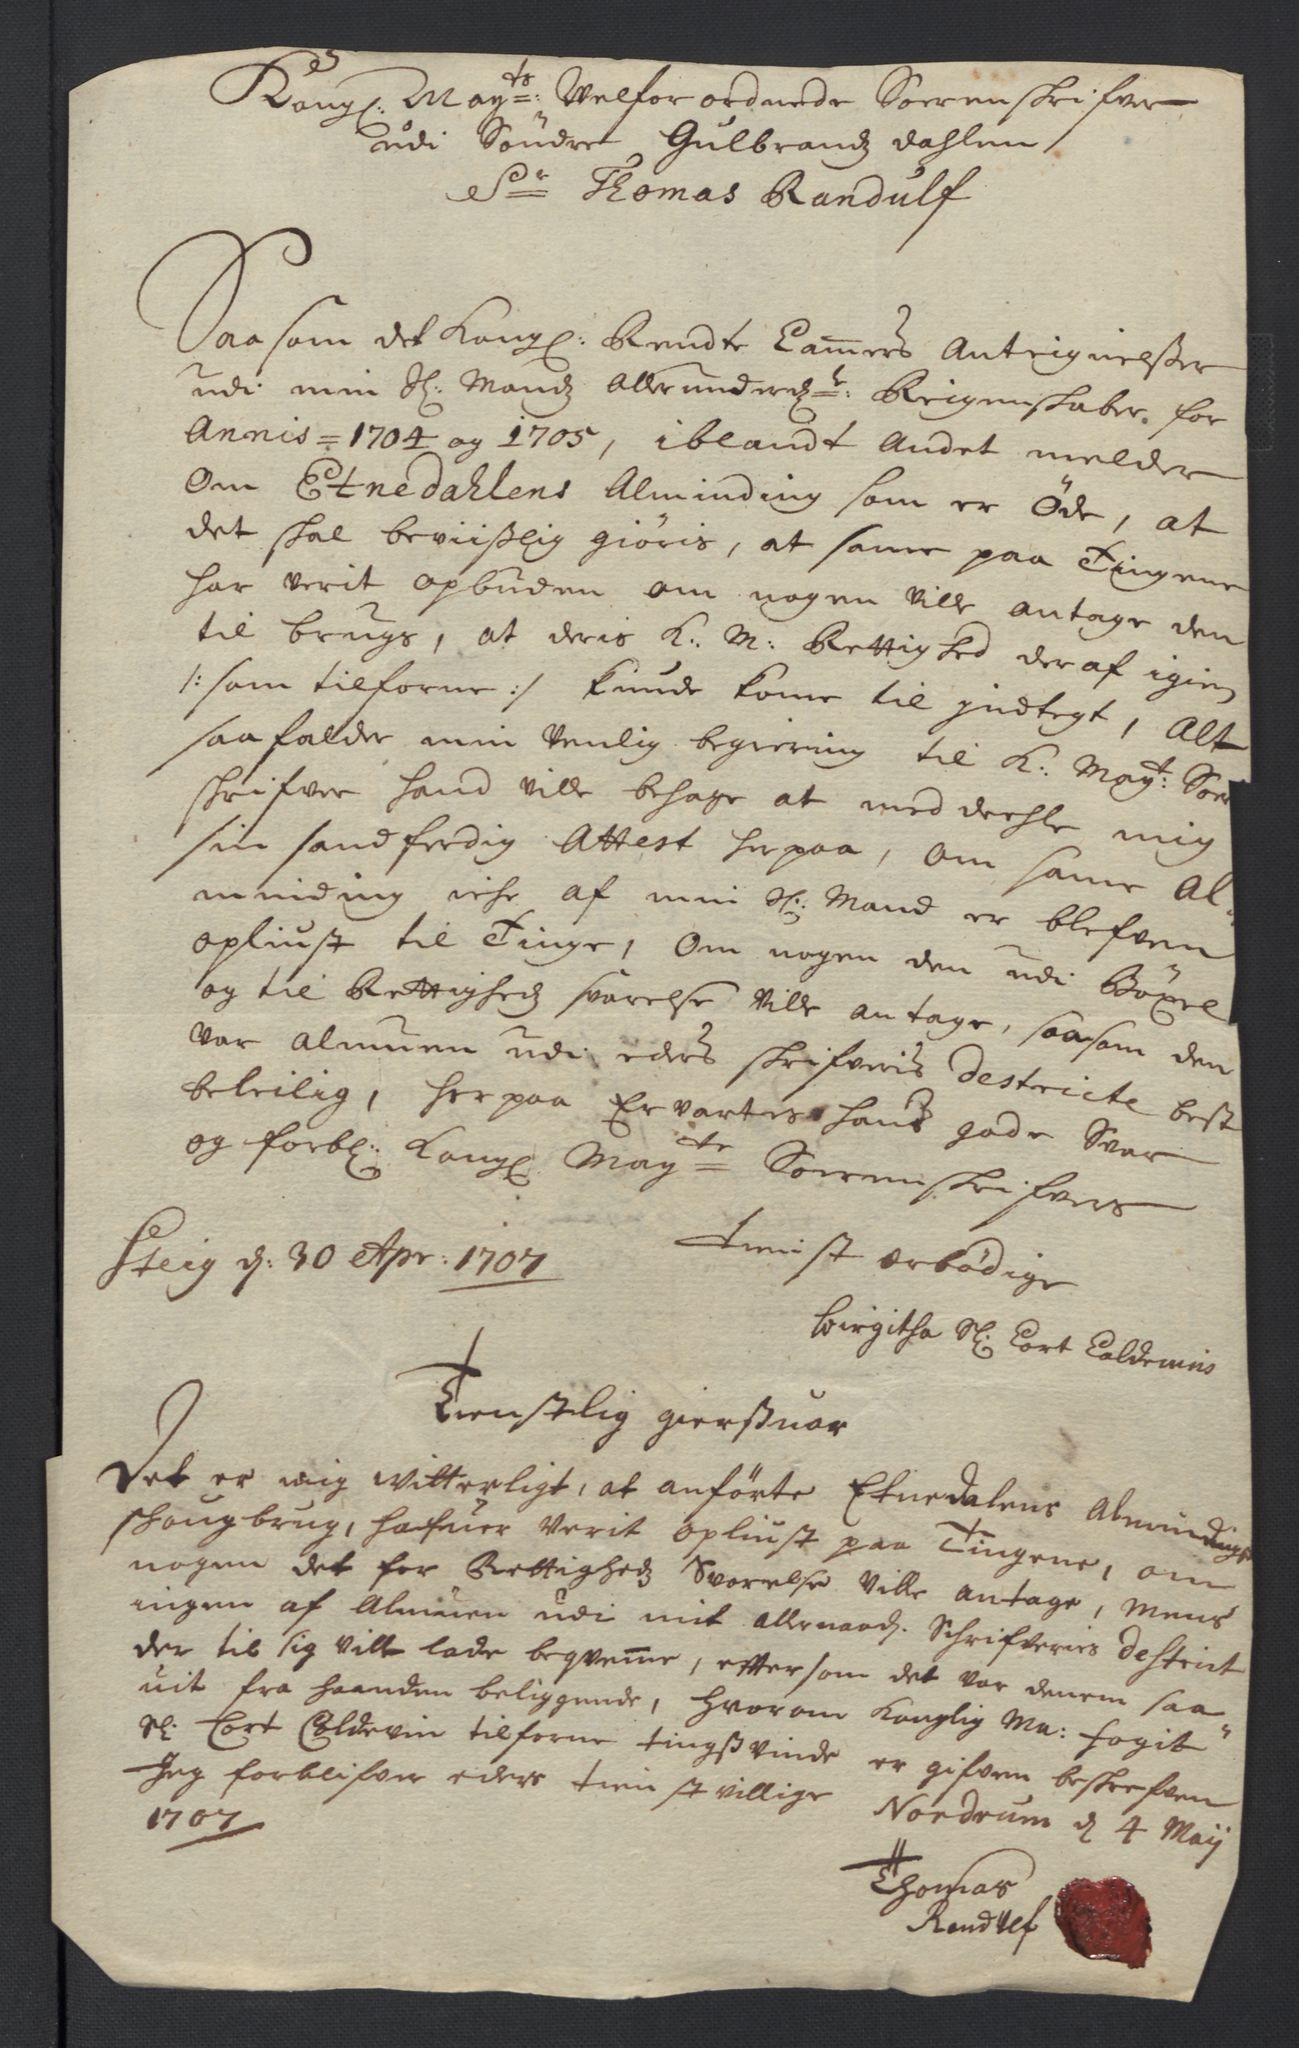 Kongl: Mayts: Welforordnede Sorenskrifver
udi Söndre Gulbrandz dahlen
Sr Thomas Randulf
Saasom det Kongl: Rendte Camers Anteignelsser
udi min Sl: Mandz allerunderdste: Reigenskaber for
Annis = 1704 og 1705, iblandt andet melder
Om Etnedahlens Alminding som er Öde, at
det skal beviislig giöris, at same paa Tingene
har verit opbuden om nogen ville antage den
til brugs, at deris K: M: Rettighed deraf igien
/: som tilforne :/ kunde kome til indtegt, Alt
saa falder min venlig begiering til K: Mayt: Soren
skrifver hand ville behage at meddeehle mig
sin sandferdig Attest herpaa, om same Al
minding iche af min Sl: Mand er blefven
opliust til Tinge, Om nogen den udi Böxel
og til Rettighedz svarelse ville antage, saasom den
var almuen udi eders skrifveris destricte best
beleilig, herpaa Ervartes hans gode Svar
og forbl: Kongl Mayts Sorenskrifvers
Steig d: 30 Apr: 1707
tienist ærbödige
Birgitha Sl: Cort Coldevins
Tienstlig gienssuar
Det er mig witterligt, at anförte Etnedalens Almindings
skougbrug, hafuer verit opliust paa Tingene, om
nogen det for Rettighedz Svarelse ville antage, mens
ingen af Almuen udi mit allernaad. Schrifveries destrict
der til sig vilt lade beqveme, eftersom det var denem saa
uit fra haanden beliggende, hvorom Konglig Ma: fogit
Sl. Cort Coldevin tilforne tingssvinde er gifven beskrefven
Jeg forblifver eders tienstvillige Nordrum d 4 Maij
1707
Thomas
Randulf